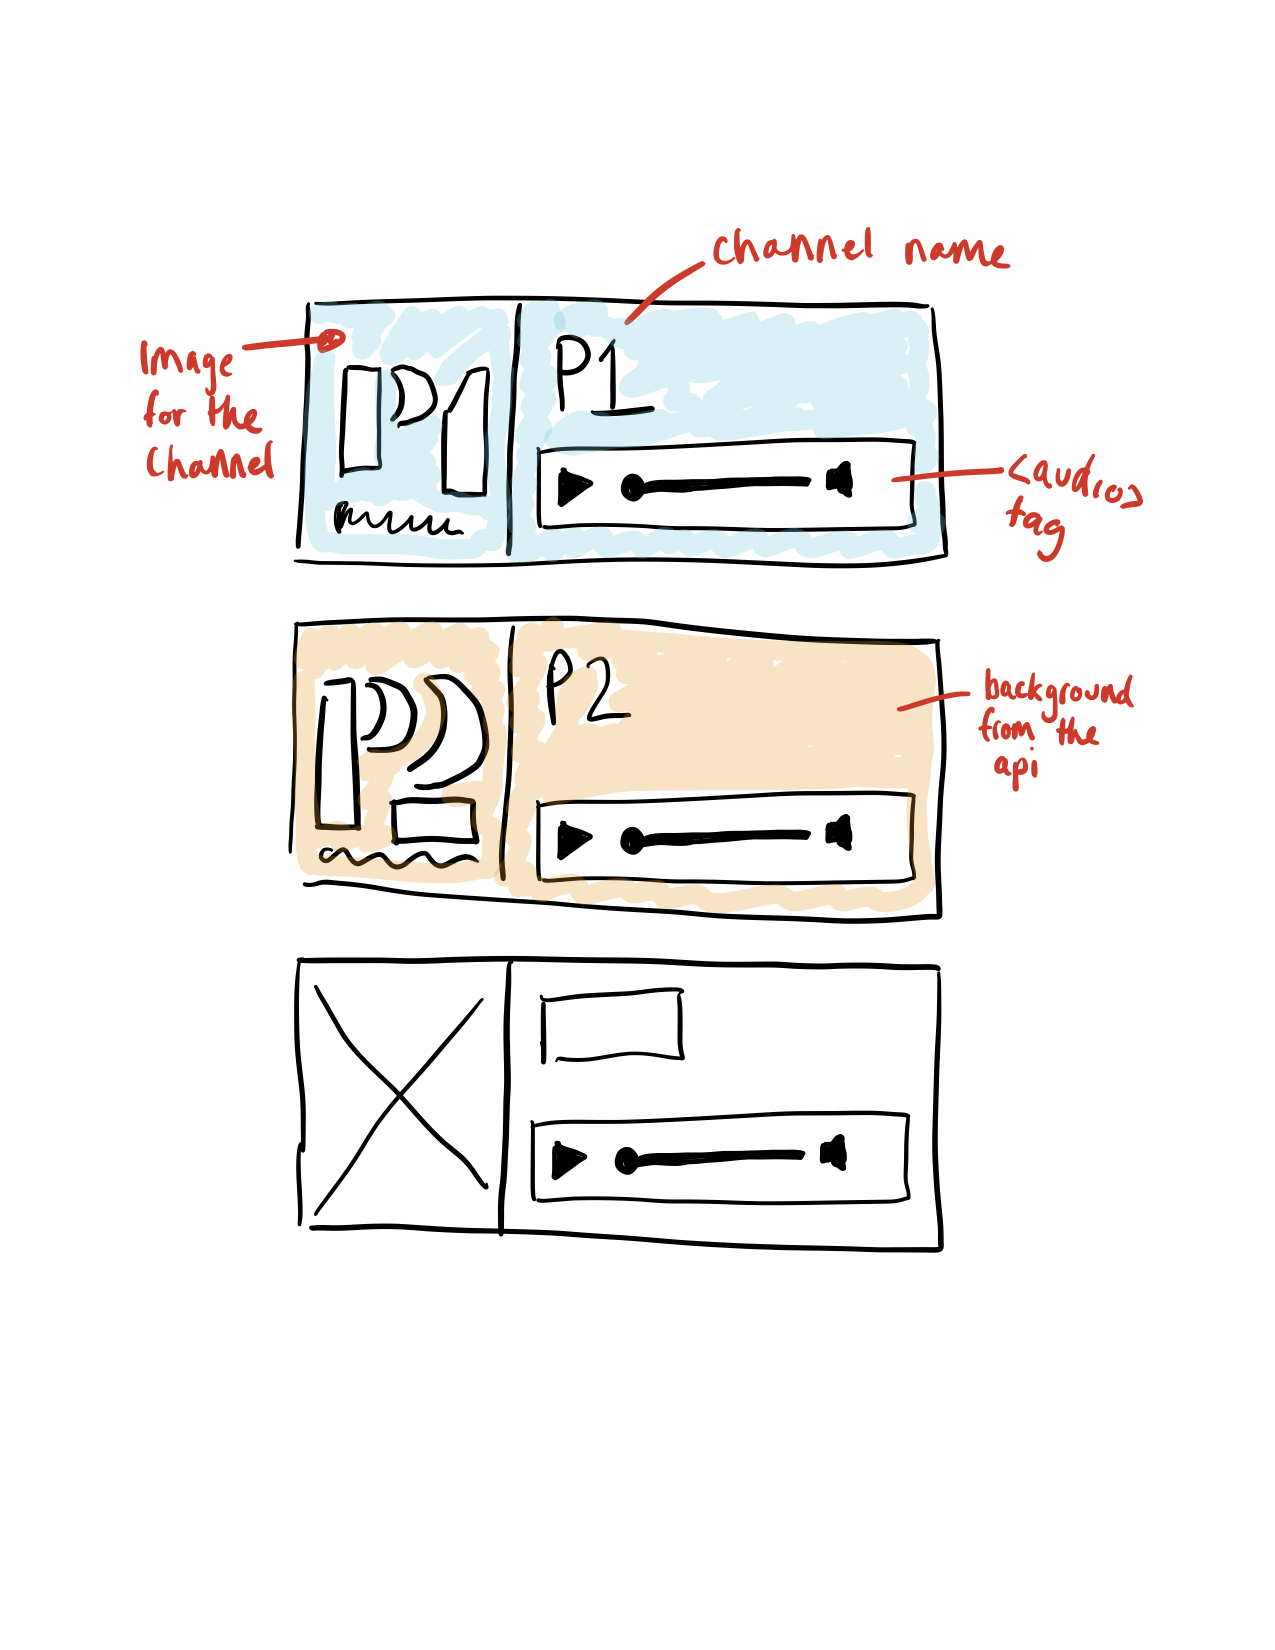 channel name
P1
Image
for the
channel
<audio>
tag
P1
P2
background
from the
api
P2